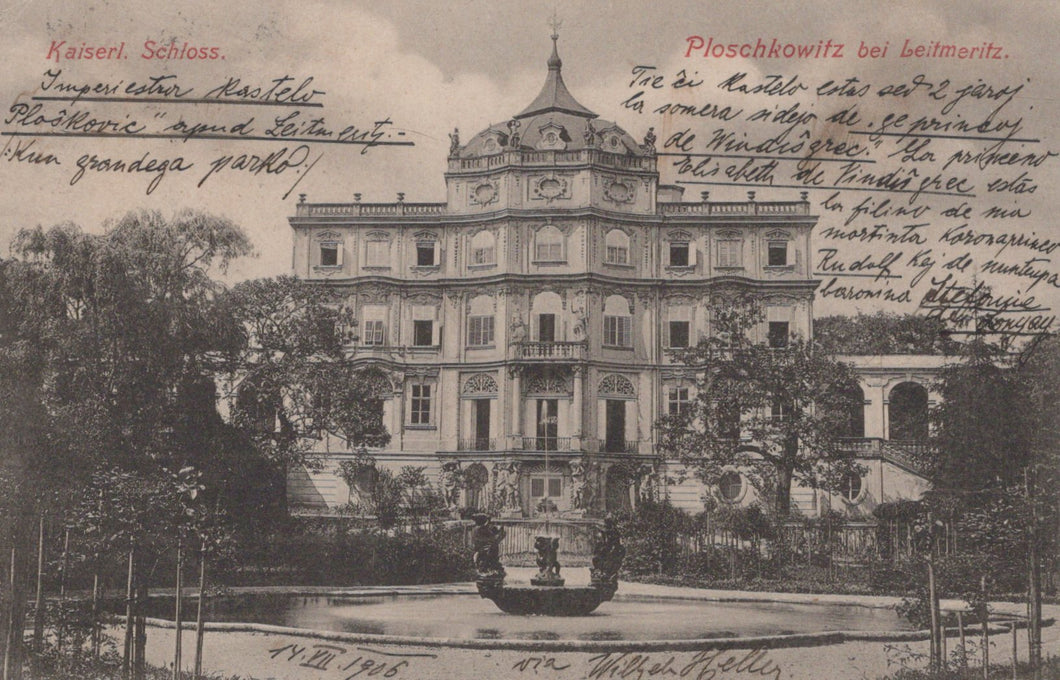 Kaiserl. Schloss.
Imperiestra Kastelo
Ploškovic" apud Leitmeritz.-
/:Kun grandega parko:/
Ploschkowitz bei Leitmeritz.
Tie ĉi kastelo estas sed 2 jaroj
la somera sidejo de „ge princoj
de Windišgrec." La princino
Elisabeth de Vindišgrec estas
la filino de nia
mortinta Kronprinco
Rudolf kaj de nuntempa
baronino Stefanie
Lonyay
14.VII.1906 via Wilhelm Heller.